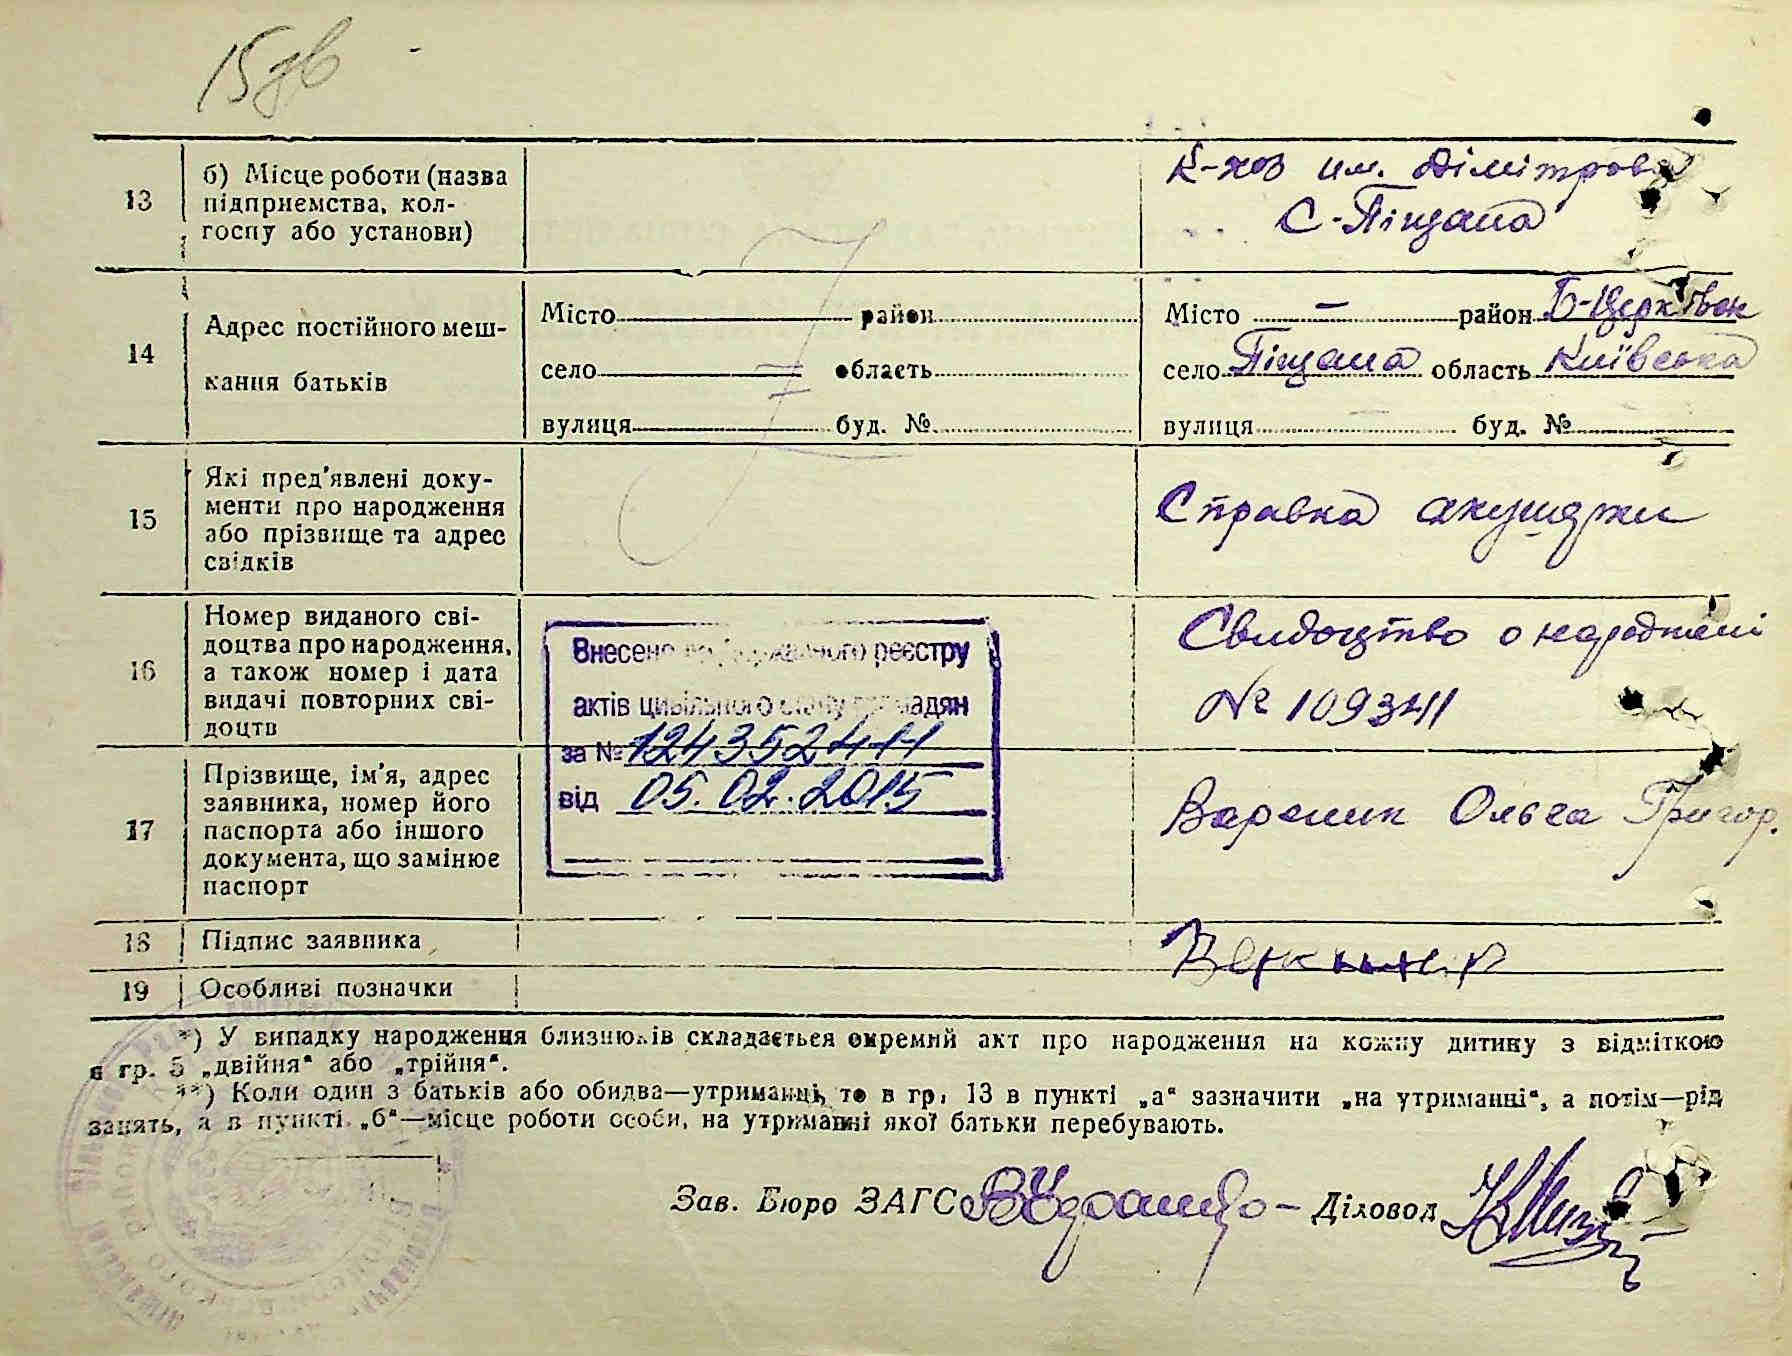 13
б) Місце роботи (назва
підприємства, кол-
госпу або установи)
К-хоз им. Дімітрова
С-Піщана
14
Адрес постійного меш-
кання батьків
Місто район
село область
вулиця буд. №
Місто – район Б-Церківск
село Піщана область Київська
вулиця буд. №
15
Які пред'явлені доку-
менти про народження
або прізвище та адрес
свідків
Справка акушерки
16
Номер виданого сві-
доцтва про народження,
а також номер і дата
видачі повторних сві-
доцтв
Свидоцтво о народжені
№ 109341
Внесено до Державного реєстру
актів цивільного стану громадян
за № 12435241
від 05.02.2015
17
Прізвище, ім'я, адрес
заявника, номер його
паспорта або іншого
документа, що замінює
паспорт
Вареник Ольга Григор.
18
Підпис заявника
19
Особливі позначки
*) У випадку народження близнюків складається окремий акт про народження на кожну дитину з відміткою
в гр. 5 „двійня“ або „трійня“.
**) Коли один з батьків або обидва—утриманці, то в гр. 13 в пункті „а“ зазначити „на утриманні“, а потім—рід
занять, а в пункті „б“—місце роботи особи, на утриманні якої батьки перебувають.
Зав. Бюро ЗАГС
Діловод